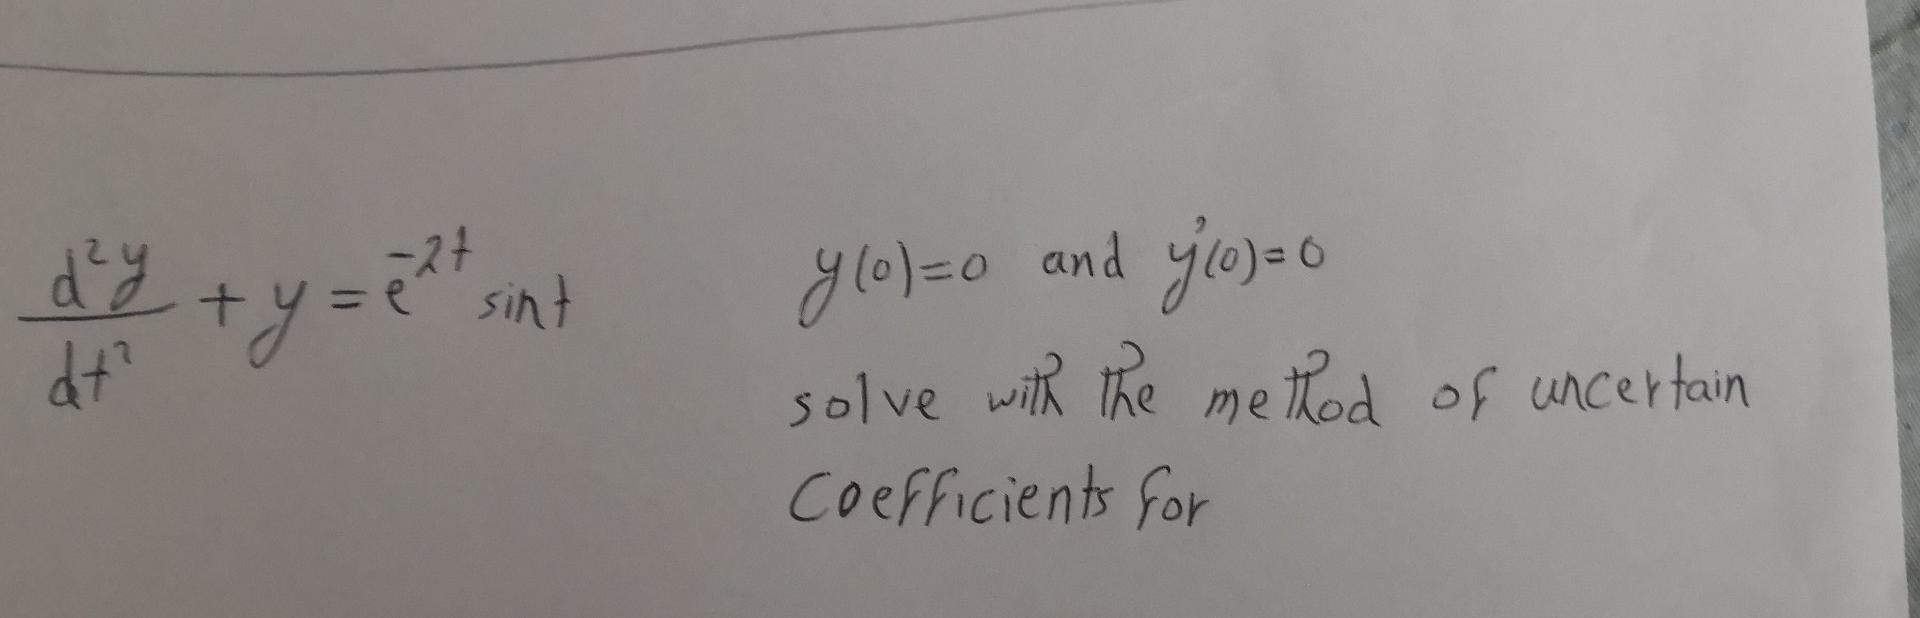 d²y/dt² + y = e^-2t sint
y(0)=0 and y'(0)=0
solve with the method of uncertain
Coefficients for